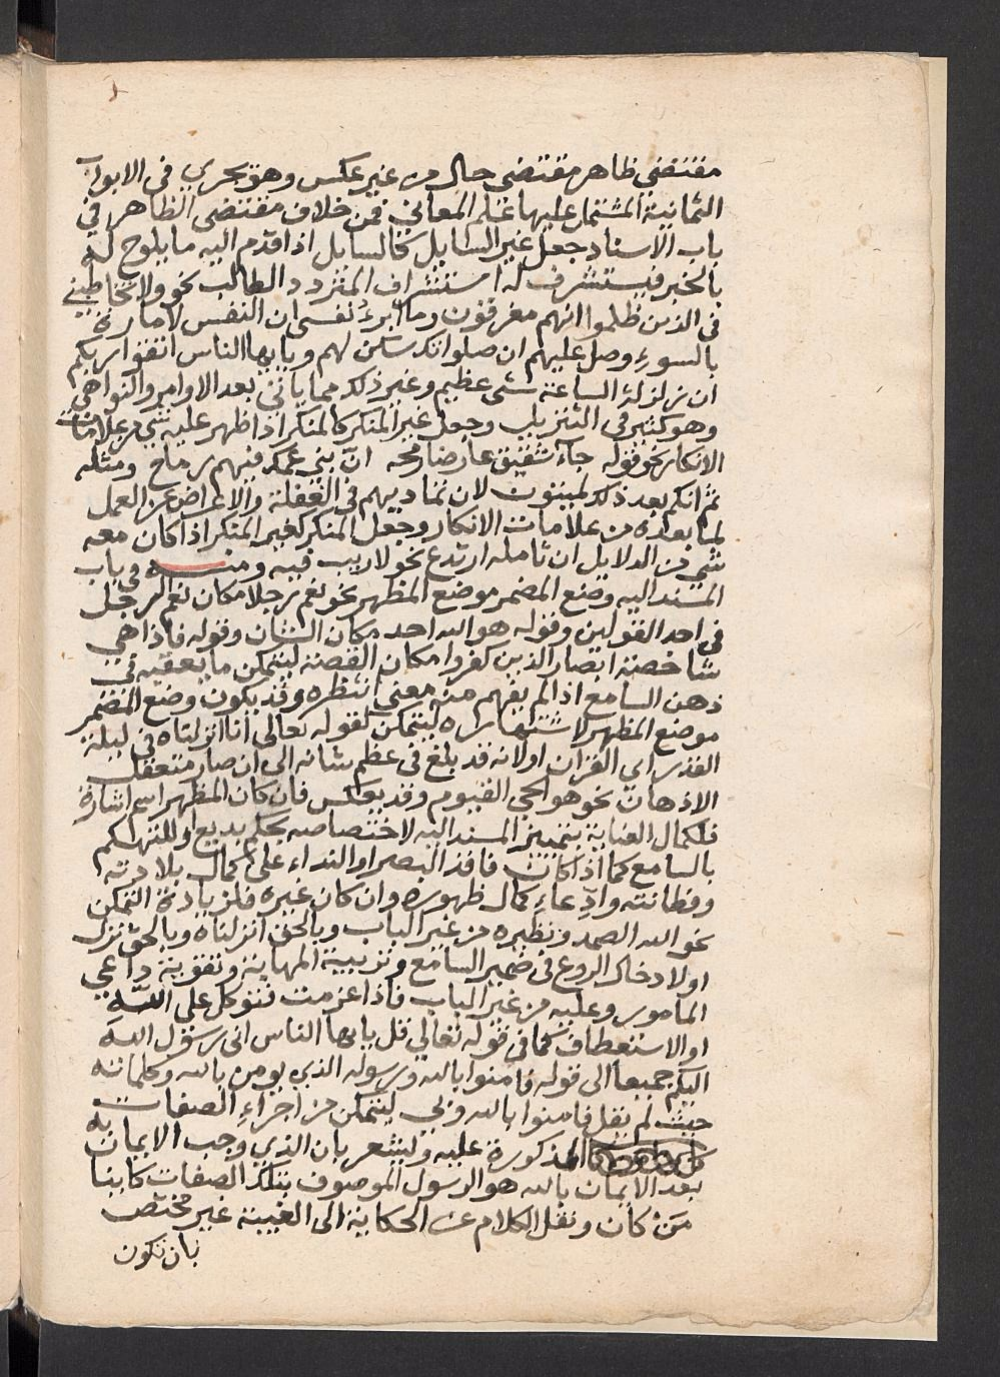 مقتضى ظاهر مقتضى حال من غير عكس وهو يجري في الابواب
الثمانية المشتمل عليها علم المعاني فمن خلاف مقتضى الظاهر في
باب الاسناد جعل غير السايل كالسايل اذا قدم اليه ما يلوح له
بالخبر فيستشرف له استشراف المتردد الطالب نحو ولا تخاطبني
في الذين ظلموا انهم مغرقون وما ابرئ نفسي ان النفس لامارة
بالسوء وصل عليهم ان صلواتك سكن لهم ويايها الناس اتقوا ربكم
ان زلزلة الساعة شي عظيم وغير ذلك مما ياتي بعد الاوامر والنواهي
وهو كثير في التنزيل وجعل غير المنكر كالمنكر اذا ظهر عليه شي من علامات
الانكار نحو قوله جاء شقيق عارضا رمحه ان بني عمك فيهم رماح ومثله
ثم انكم بعد ذلك لميتون لان تماديهم في الغفلة والاعراض عن العمل
لما بعده من علامات الانكار وجعل المنكر كغير المنكر اذا كان معه
شي من الدلايل ان تامله ارتدع نحو لا ريب فيه ومنه في باب
المسند اليه وضع المضمر موضع المظهر نحو نعم رجلا مكان نعم الرجل
في احد القولين وقوله هو الله احد مكان الشان وقوله فاذا هي
شاخصة ابصار الذين كفروا مكان القصة ليتمكن ما يعقبه في
ذهن السامع اذا لم يفهم منه معنى انتظره وقد يكون وضع المضمر
موضع المظهر لاشتهاره ليتمكن لقوله تعالى انا انزلناه في ليلة
القدر اي القران او لانه قد بلغ في عظم شانه الى ان صار متعقل
الاذهان نحو هو الحي القيوم وقد يعكس فان كان المظهر اسم اشارة
فلكمال العناية بتمييز المسند اليه لاختصاصه بحكم بديع او للتهكم
بالسامع كما اذا كان فاقد البصر او النداء على كمال بلادته
وفطانته وادعاء كمال ظهوره وان كان غيره فلزيادة التمكن
نحو الله الصمد ونظيره من غير الباب وبالحق انزلناه وبالحق نزل
او لادخال الروع في ضمير السامع وتربية المهابة وتقوية داعي
المامور وعليه من غير الباب فاذا عزمت فتوكل على الله
او الاستعطاف كما في قوله تعالى قل يايها الناس اني رسول الله
اليكم جميعا الى قوله فامنوا بالله ورسوله الذي يومن بالله وكلماته
حيث لم يقل فامنوا بالله وبي ليتمكن من اجراء الصفات
المذكورة عليه وليشعر بان الذي وجب الايمان به
بعد الايمان بالله هو الرسول الموصوف بتلك الصفات كاينا
من كان ونقل الكلام عن الحكاية الى الغيبة غير مختص
بان تكون